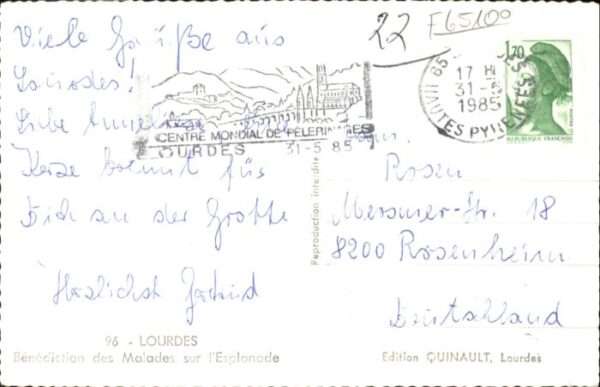 22
F65100
Viele Grüße aus
Lourdes!
Liebe
Kerze brennt für
Dich an der Grotte
Herzlichst Gertrud
CENTRE MONDIAL DE PELERINAGES
LOURDES 31-5 85
65
17 H
31-5
1985
HAUTES PYRENEES
1,70
REPUBLIQUE FRANÇAISE
Rosen
Messner-Str. 18
8200 Rosenheim
Deutschland
Reproduction interdite
96 - LOURDES
Bénédiction des Malades sur l'Esplanade
Edition QUINAULT, Lourdes